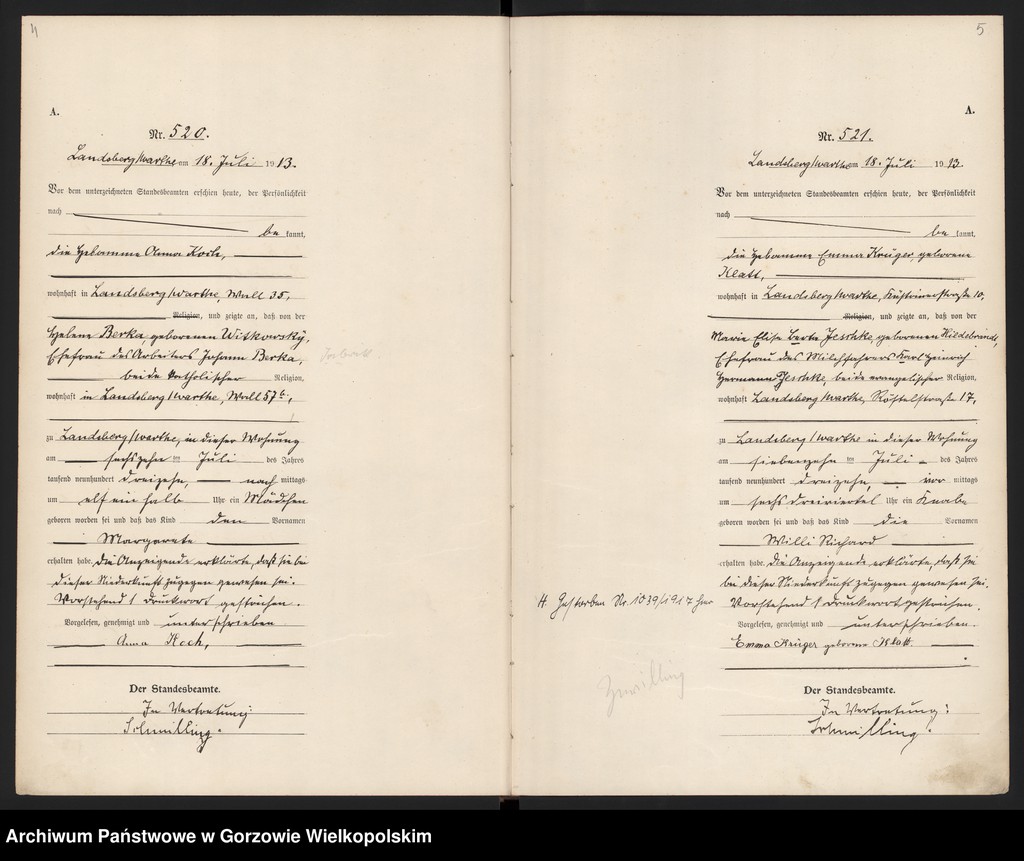 4
A.
Nr. 520.
Landsberg/Warthe am 18. Juli 1913.
Vor dem unterzeichneten Standesbeamten erschien heute, der Persönlichkeit
nach
be kannt,
die Hebamme Anna Koch,
wohnhaft in Landsberg/Warthe, Wall 35,
Religion, und zeigte an, daß von der
Helene Berka, geborenen Witkowsky,
Ehefrau des Arbeiters Johann Berka,
beide katholischer Religion,
wohnhaft in Landsberg/Warthe, Wall 57b,
zu Landsberg/Warthe, in dieser Wohnung
am sechszehn ten Juli des Jahres
tausend neunhundert dreizehn, nach mittags
um elf ein halb Uhr ein Mädchen
geboren worden sei und daß das Kind den Vornamen
Margarete
erhalten habe. Die Anzeigende erklärte, daß sie bei
dieser Niederkunft zugegen gewesen sei.
Vorstehend 1 Druckwort gestrichen.
Vorgelesen, genehmigt und unterschrieben
Anna Koch,
Der Standesbeamte.
In Vertretung:
Schmilling.
5
A.
Nr. 521.
Landsberg/Warthe am 18. Juli 1913.
Vor dem unterzeichneten Standesbeamten erschien heute, der Persönlichkeit
nach
be kannt,
die Hebamme Emma Krüger, geborene
Klatt,
wohnhaft in Landsberg/Warthe, Küstrinerstraße 10,
Religion, und zeigte an, daß von der
Marie Elise Berta Jeschke, geborenen Hildebrandt,
Ehefrau des Milchfahrers Karl Heinrich
Hermann Jeschke, beide evangelischer Religion,
wohnhaft Landsberg/Warthe, Röstelstraße 17,
zu Landsberg/Warthe in dieser Wohnung
am siebenzehn ten Juli des Jahres
tausend neunhundert dreizehn, vor mittags
um sechs dreiviertel Uhr ein Knabe
geboren worden sei und daß das Kind die Vornamen
Willi Richard
erhalten habe. Die Anzeigende erklärte, daß sie
bei dieser Niederkunft zugegen gewesen sei.
Vorstehend 1 Druckwort gestrichen.
Vorgelesen, genehmigt und unterschrieben.
Emma Krüger geborene Klatt.
Der Standesbeamte.
In Vertretung:
Schmilling.
Gestorben Nr. 1039/1917 hier
Zwilling
Archiwum Państwowe w Gorzowie Wielkopolskim